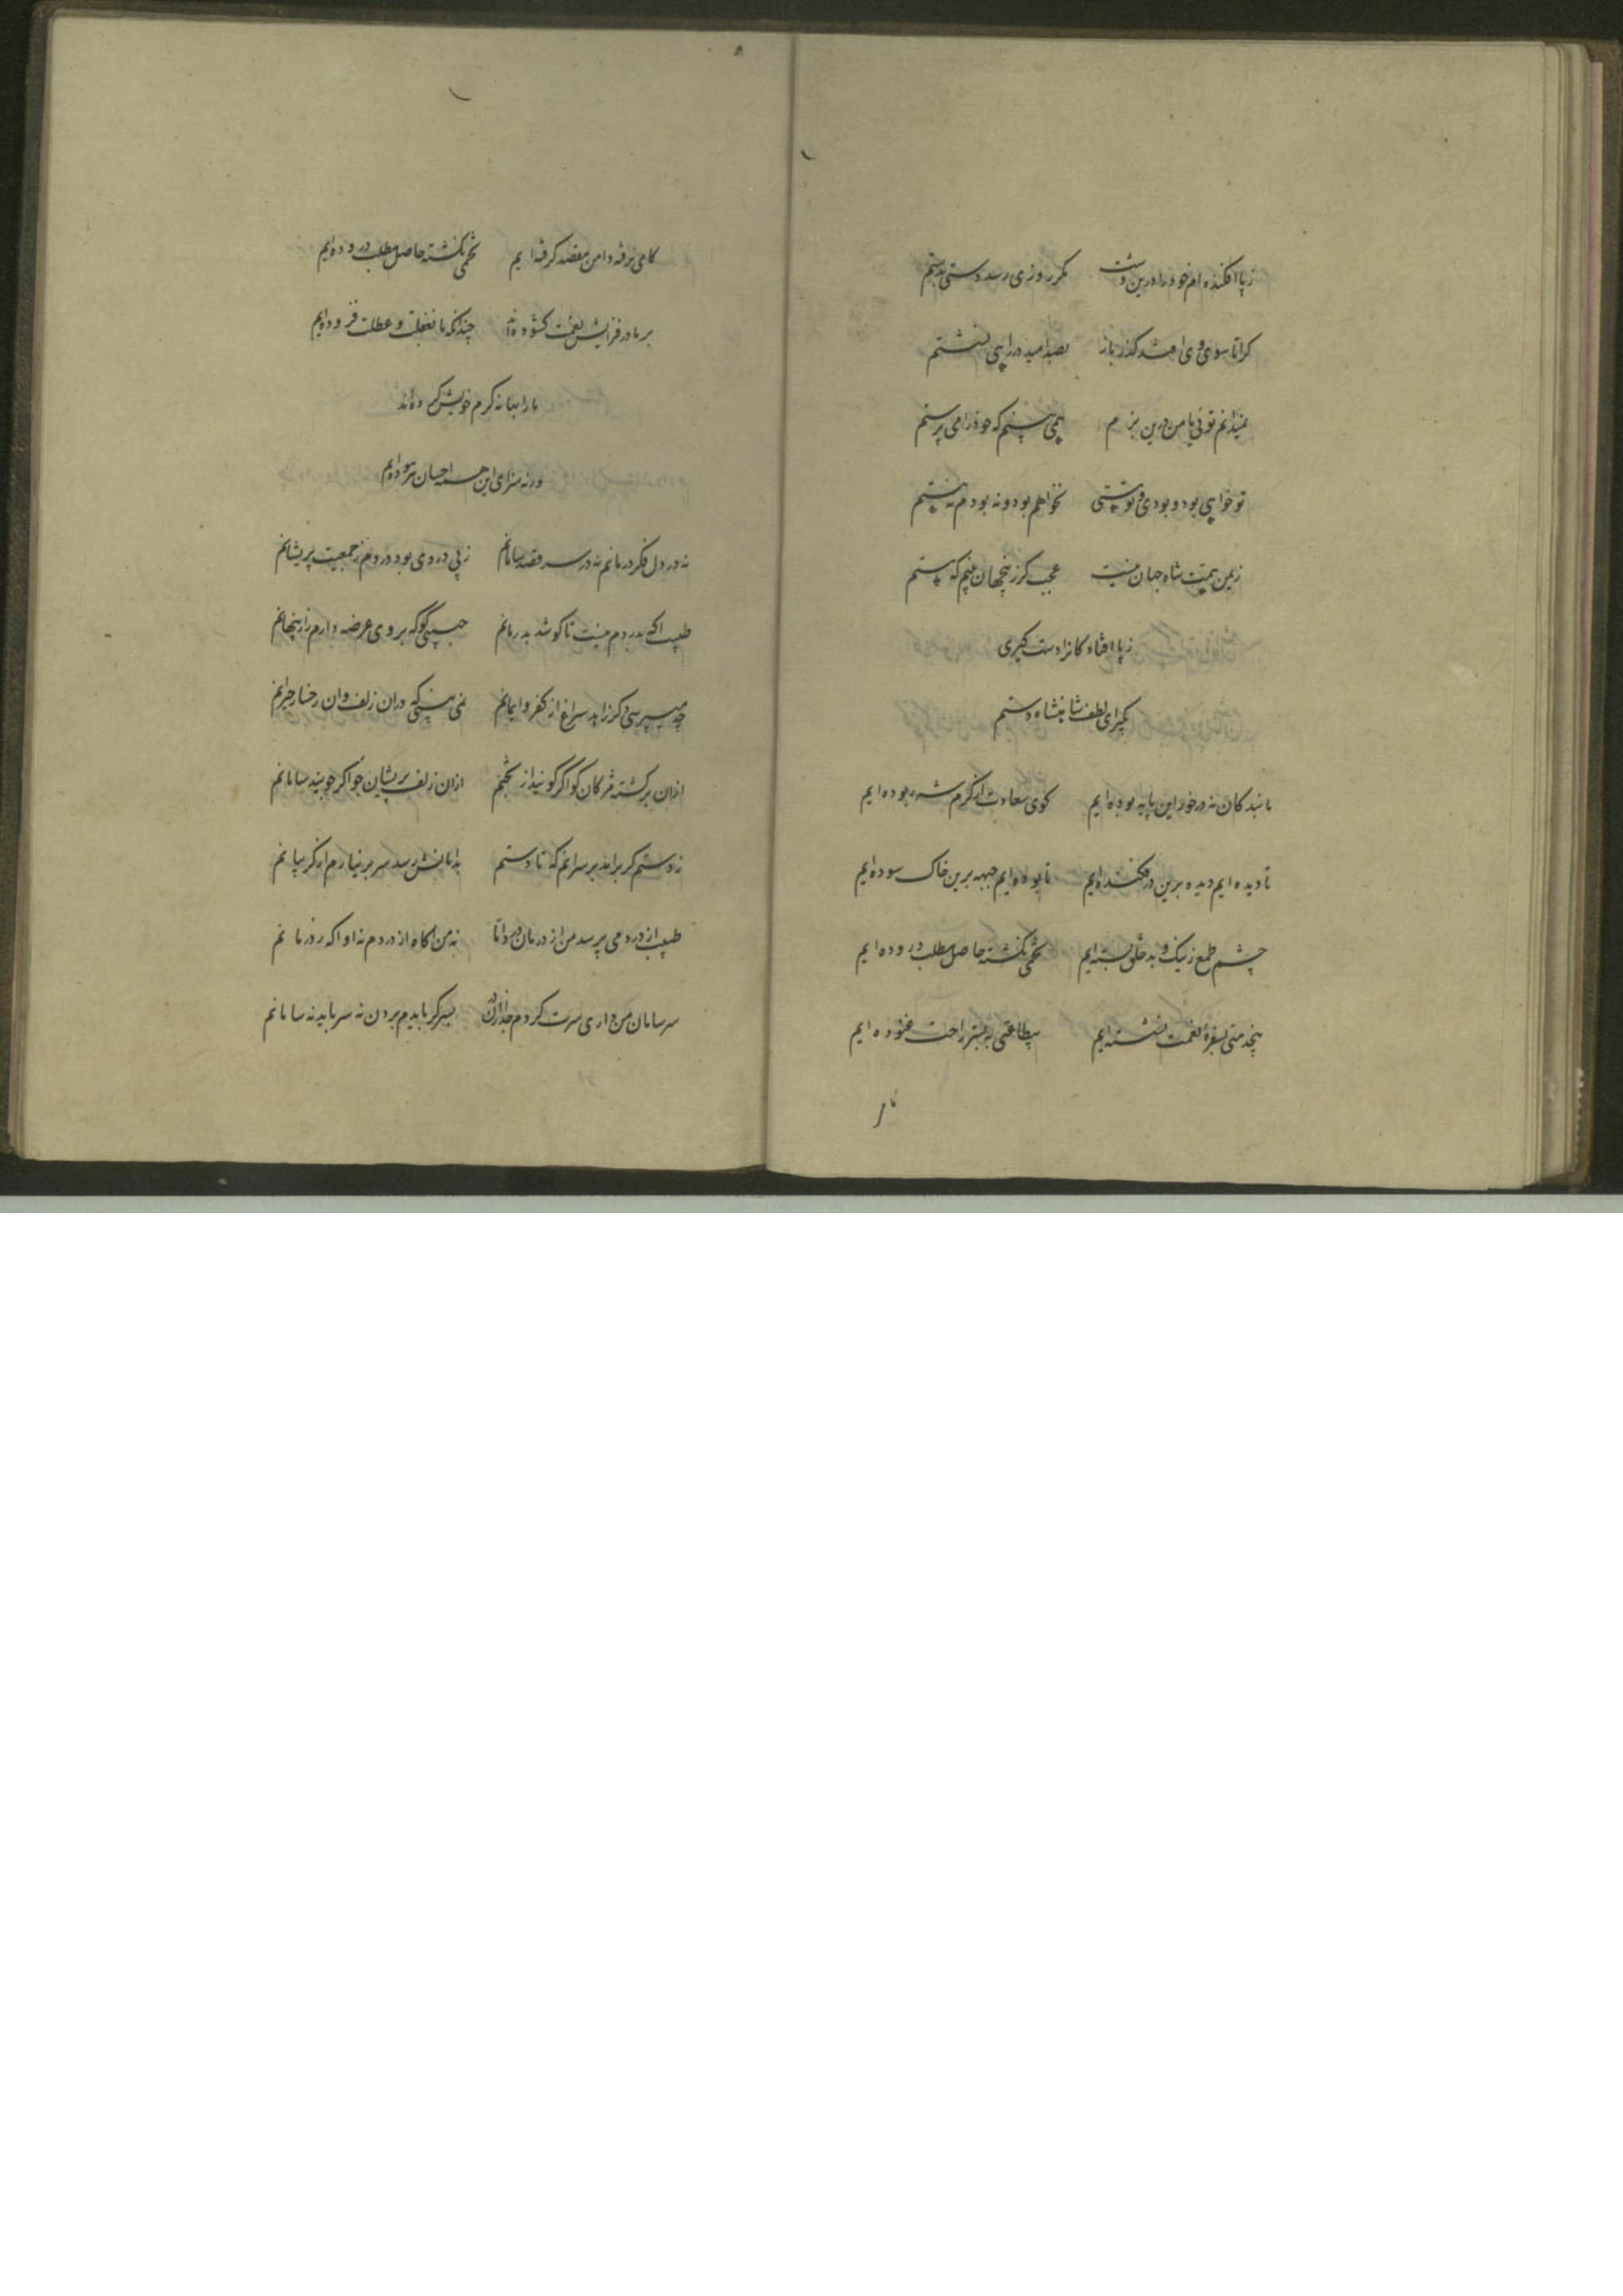 ز پا افکنده ام خود را درین دشت مکر روزی رسد دستی بدستم
کرا تا سوی وی افتد کذر باز بصد امید در راهی نشستم
نمیدانم توئی یا من درین بزم همی بینم که خود را می پرستم
تو خواهی بود و بودی و تو هستی نخواهم بود و نه بودم نه هستم
زیمن همت شاه جهان نیست عجب کر زین جهان بینم که پستم
ز پا افتاد کانرا دست کیری
بکیرای لطف شاهنشاه دستم
ما بند کان نه در خور این پایه بوده ایم کوی سعادت از کرم شه ربوده ایم
تا دیده ایم دیده برین در فکنده ایم تا بوده ایم جبهه برین خاک سوده ایم
چشم طمع ز نیک و بد خلق بسته ایم تخمی نکشته حاصل مطلب دروده ایم
بیخدمتی بسفرهٔ نعمت نشسته ایم بیطاعتی به بستر راحت غنوده ایم
کا
کامی نرفته دامن مقصد کرفته ایم تخمی نکشته حاصل مطلب دروده ایم
بر ما در فزایش نعمت کشوده اند چندانکه ما بغفلت و عطلت فزوده ایم
ما را بها نه کرم خویش کرده اند
ورنه سزای این همه احسان نبوده ایم
نه در دل فکر درمانم نه در سر قصد سامانم ز بی دردی بود دردم ز جمعیت پریشانم
طبیب آکه ز دردم نیست تا کوشد بدرمانم حبیبی کو که بر وی عرضه دارم راز پنهانم
چه میپرسی دکر زاهد سراغ از کفر و ایمانم نمی بینی که در ان زلف و ان رخسار حیرانم
ازان برکشته مژکان کو اکر کوئید از بختم ازان زلف پریشان جو اکر جوئید سامانم
ز دستم کر براید بر سر انم که تا دستم بدامانش رسد سر بر نیارم از کریبانم
طبیب از درد می پرسد من از درمان درد اما نه من آکاه از دردم نه او آکه ز درمانم
سر سامان من داری سرت کردم بسر کر بایدم بردن نه سر باید نه سامانم